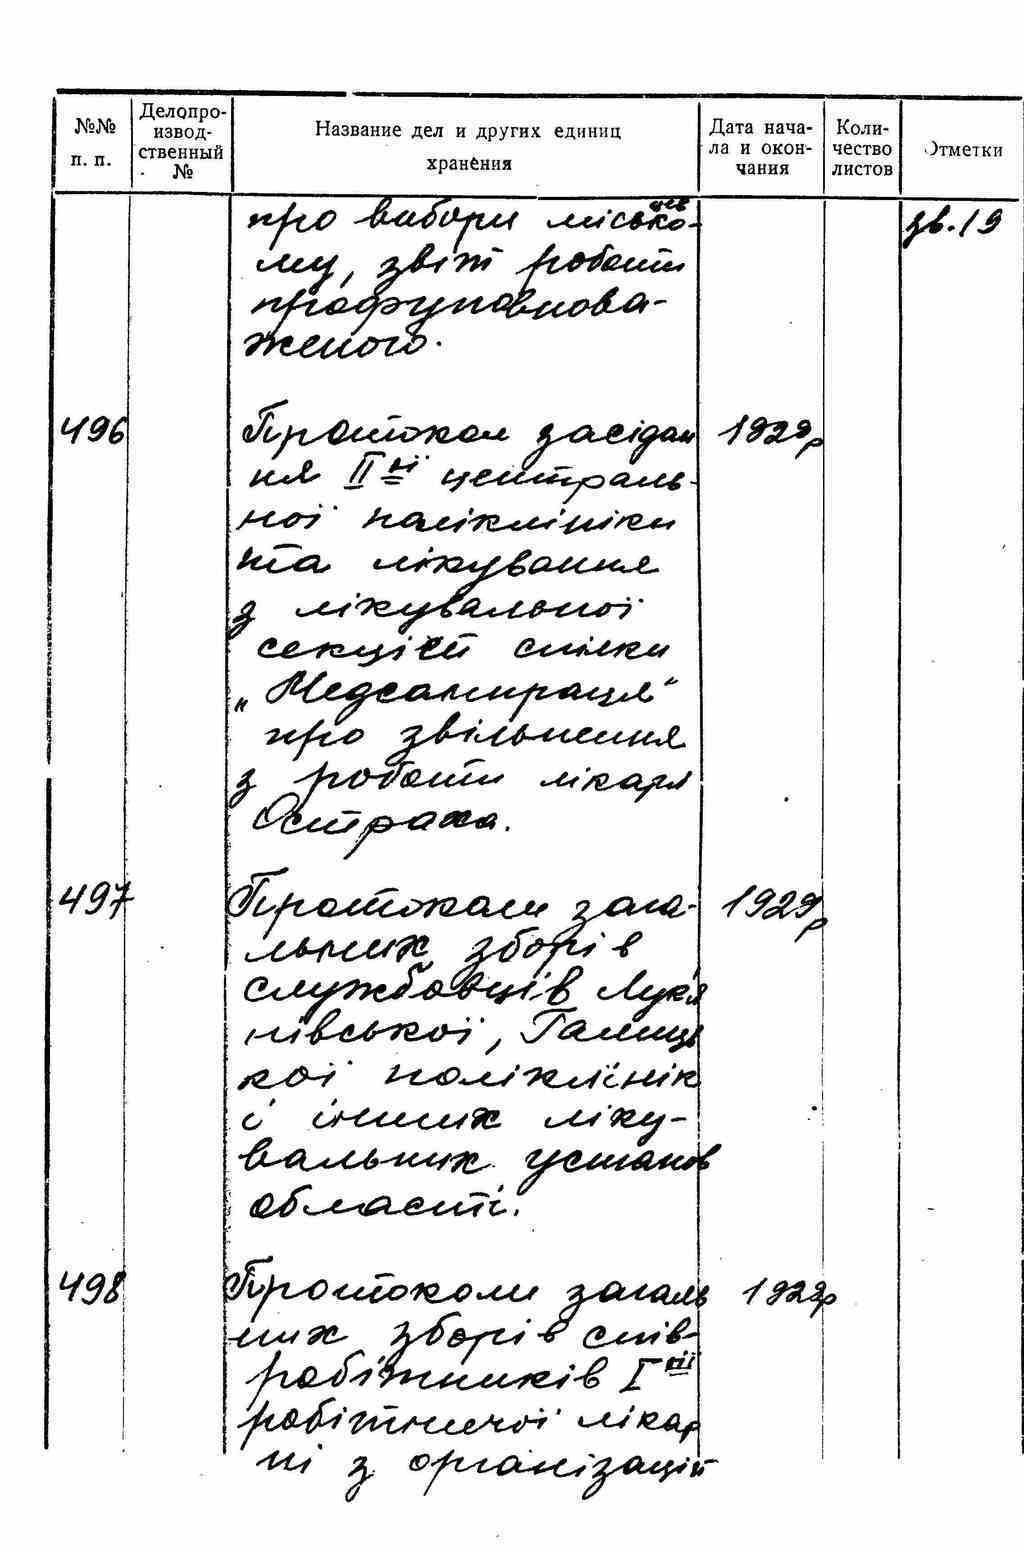 №№ п. п.
Делопро-
извод-
ственный
№
Название дел и других единиц
хранения
Дата нача-
ла и окон-
чания
Коли-
чество
листов
Отметки
про вибори місько- зв. 19
му, звіт роботи
профуповнова-
женого.
496 Протокол засідан 1929р
ня ІІ ої централь-
ної поліклініки
та лікування
з лікувальної
секцією спілки
„Медсанпраця"
про звільнення
з роботи лікаря
Остраха.
497 Протоколи зага- 1929р
льних зборів
службовців Лук'я
нівської, Галиць
кої поліклінік
і інших ліку-
вальних установ
області.
498 Протоколи загаль 1929р
них зборів спів-
робітників І ої
робітничої лікар
ні з організацій